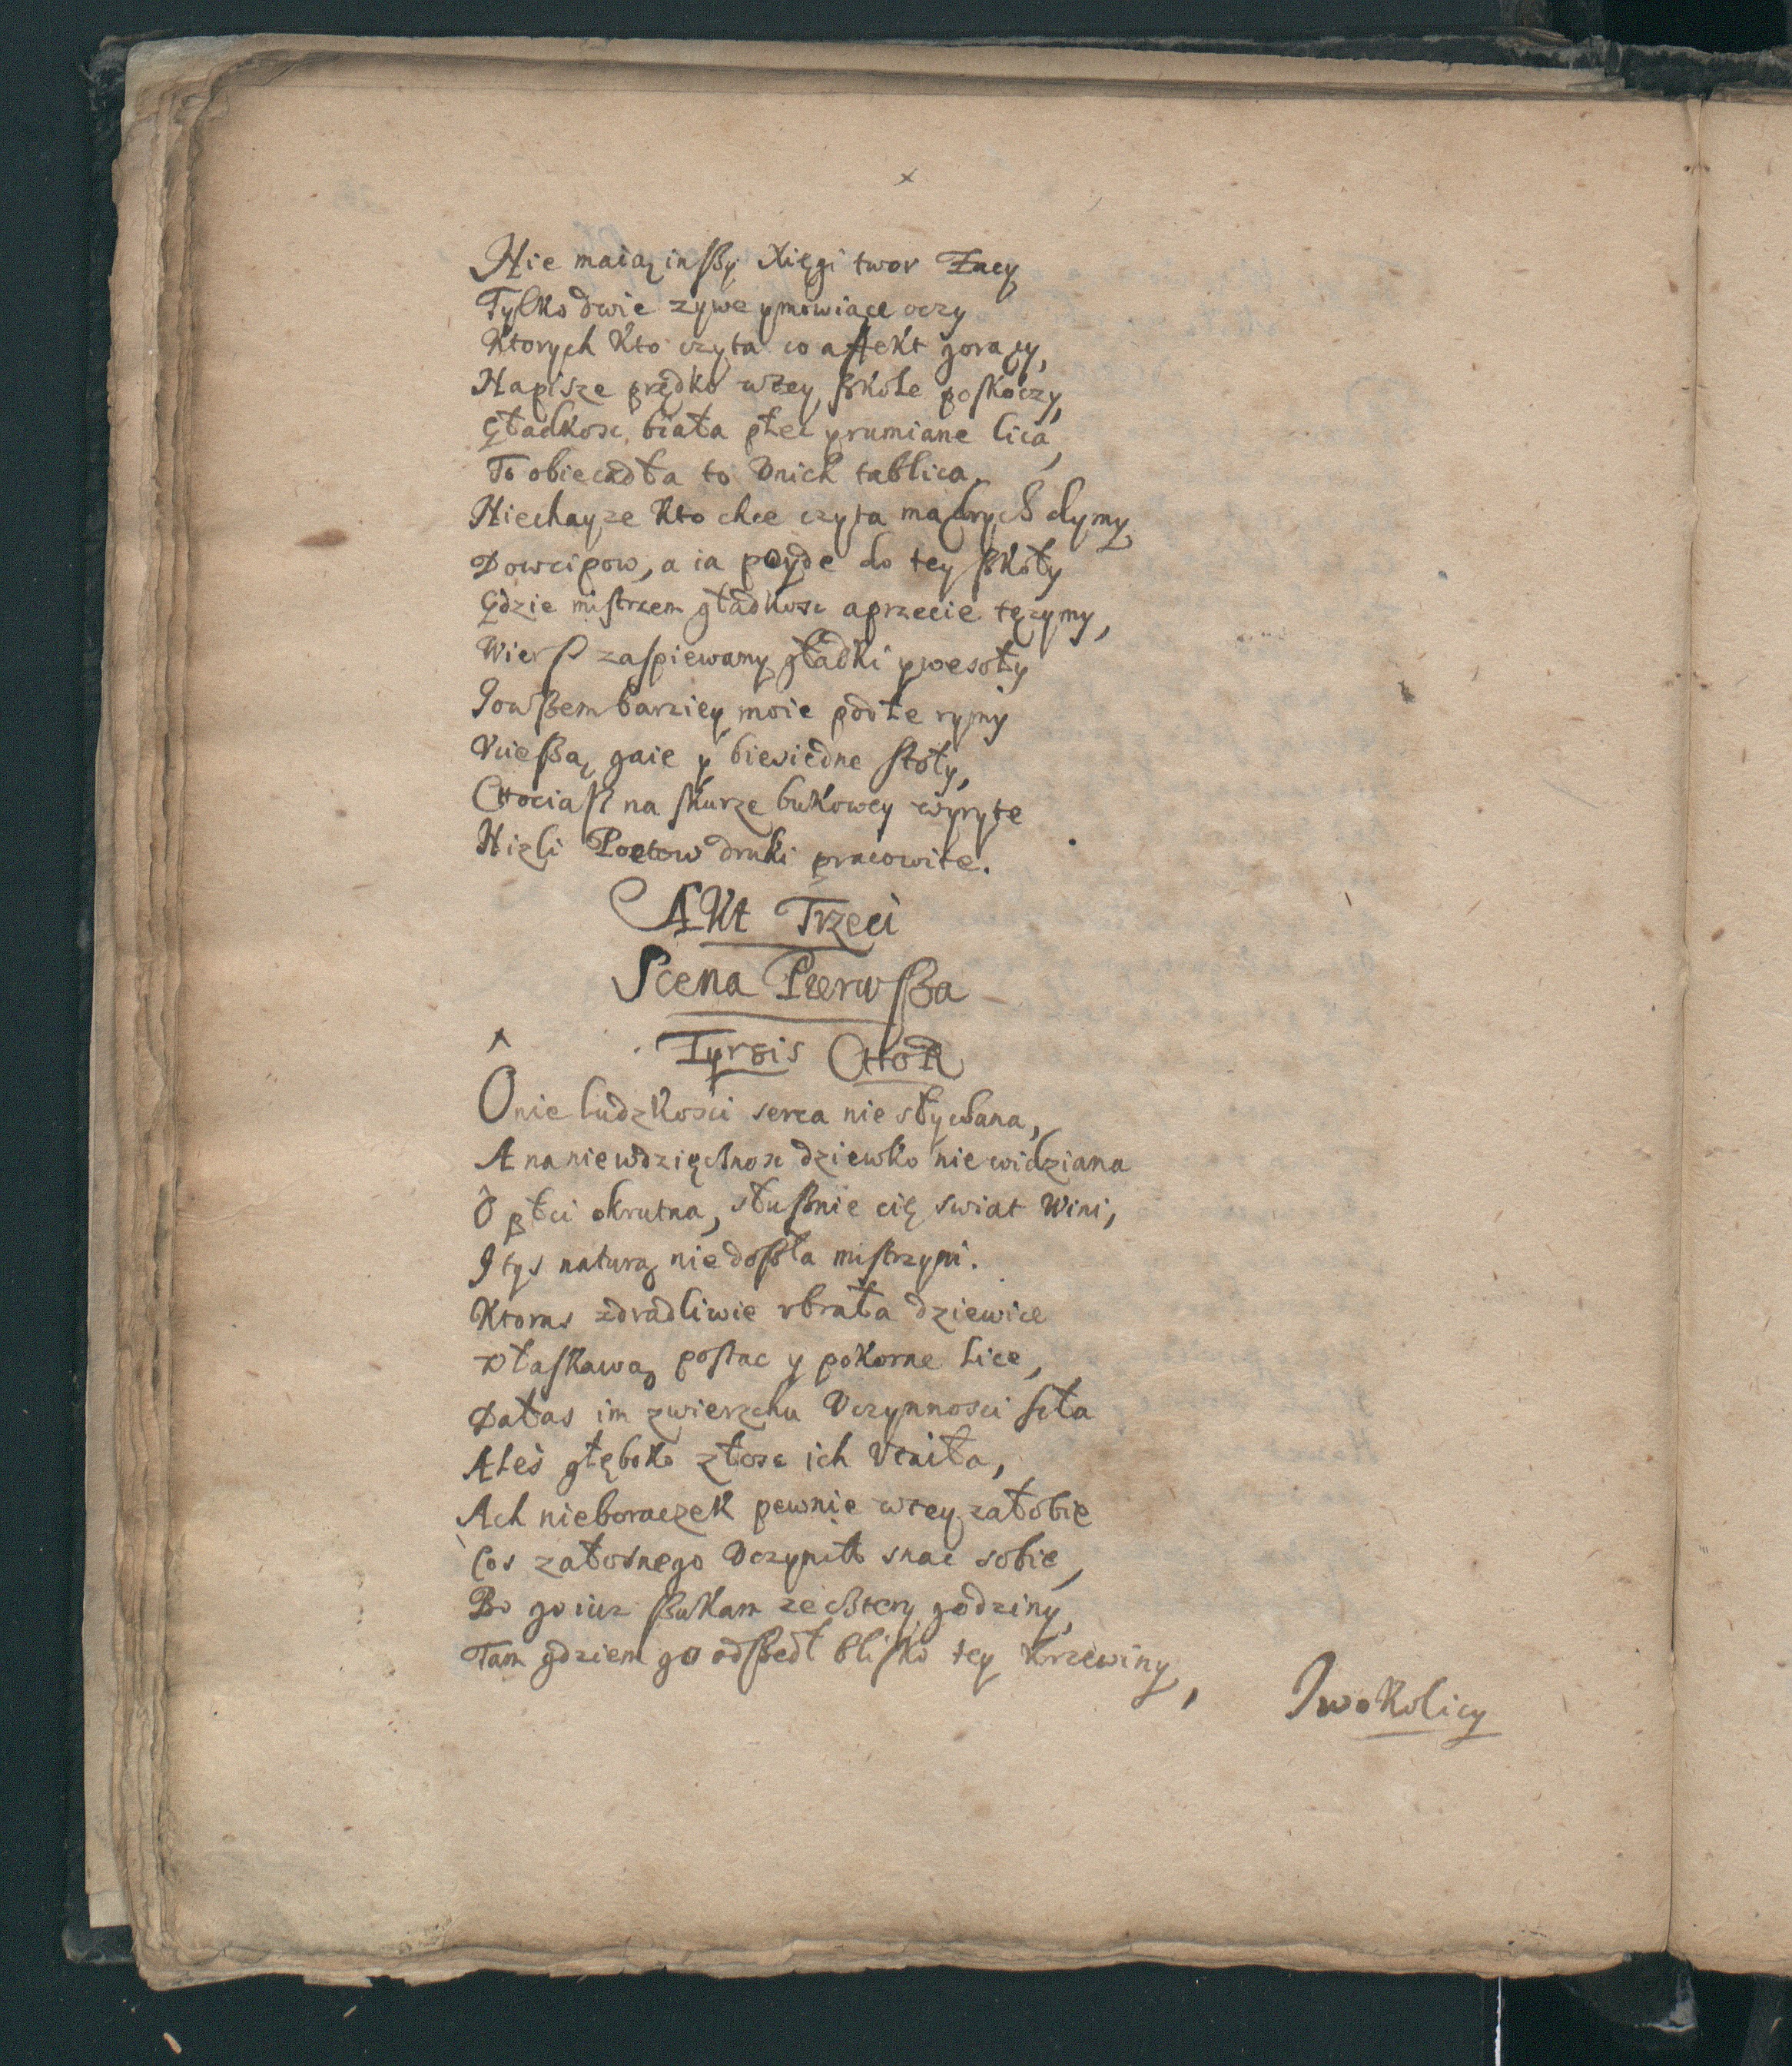 x
Nie maią inſzy Xięgi twor Żacy
Tylko dwie zywe y mowiące oczy
Ktorych Kto czyta co affekt gorący,
Napisze prędko wtey ſzkole poſkoczy,
Gładkosc, biała płec y rumiane lica,
To obiecadła to Vnich tablica.
Niechayze Kto chce czyta mądrych dymy
Dowcipow, a ia poyde do tey ſzkoły
Gdzie miſtrzem gładkosc a przecie tęzymy,
Wierſz zaſpiewamy gładki y wesoły
Jowſzem barziey moie podłe rymy
Vcieſzą gaie y biesiedne ſtoły,
Chociaſz na ſkurze bukowey wyryte
Nizli Poetow druki pracowite.
AKt Trzeci
Scena Pierwſza
Tyrsis CHOR
O nie ludzkosci serca nie słychana,
A na niewdzięcznosc dziewko nie widziana
O płci okrutna, słuſznie cię swiat Wini,
I tys naturą niedoſzła miſtrzyni.
Ktoras zdradliwie vbrała dziewice
Właſkawą poſtac y pokorne lice,
Dałas im zwierzchu Vczynnosci ſiła
Aleś głęboko złosc ich Vcniła,
Ach nieboraczek pewnie wtey załobie
Cos załosnego Vczynił snac sobie,
Bo go iuz ſzukam ze cztery godziny,
Tam gdziem go odſzedł bliſko tey Krzewiny,
Jwokolicy